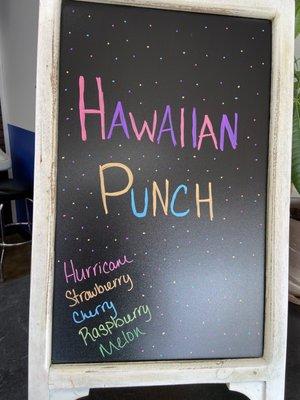 Hawaiian
Punch
Hurricane
Strawberry
Cherry
Raspberry
Melon